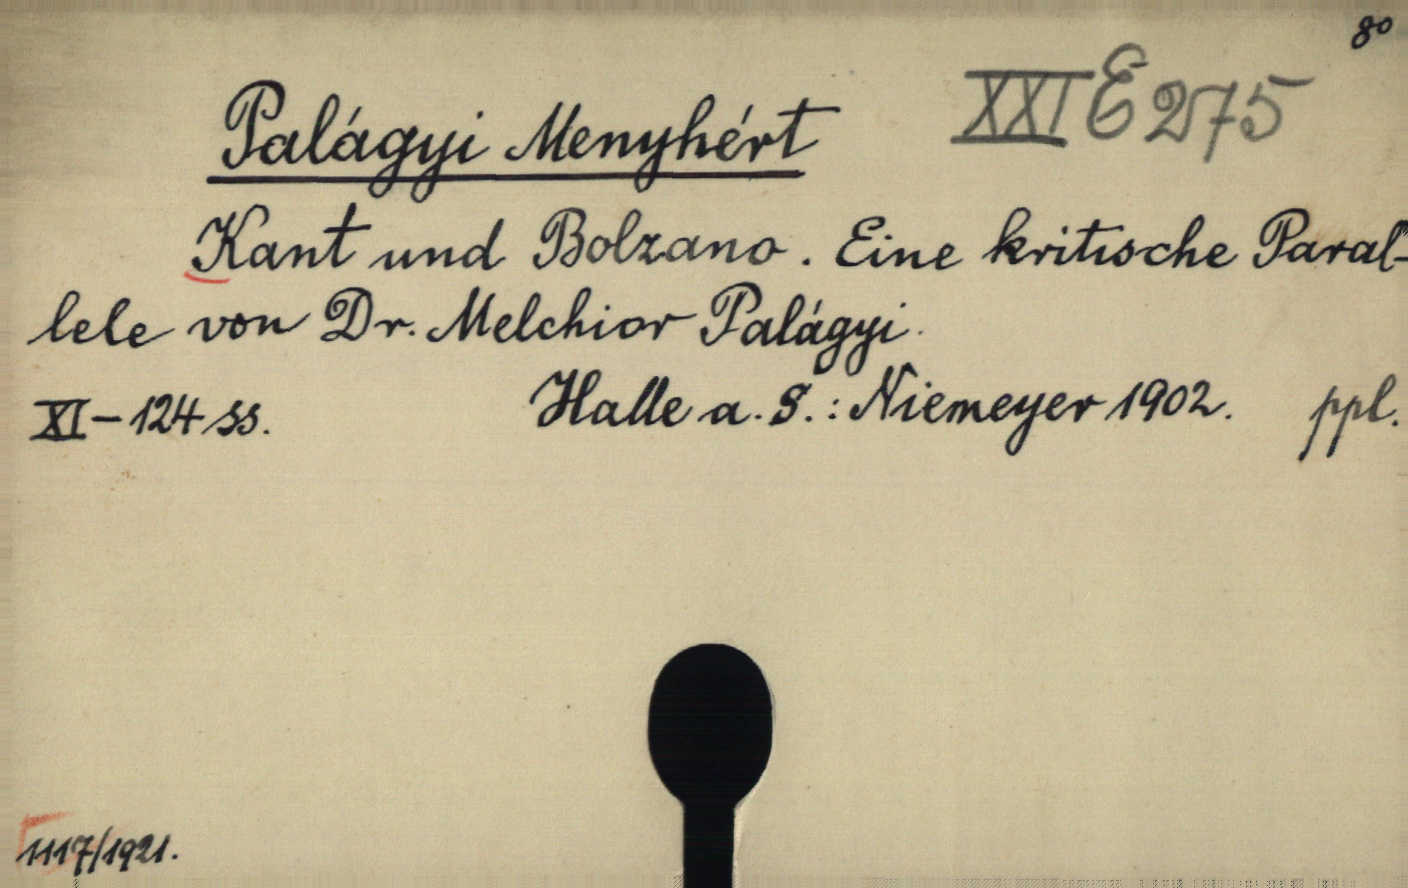 8°
XXI E 275
Palágyi Menyhért
Kant und Bolzano. Eine kritische Paral-
lele von Dr. Melchior Palágyi.
XI-124 ss. Halle a. S.: Niemeyer 1902. ppl.
1117/1921.